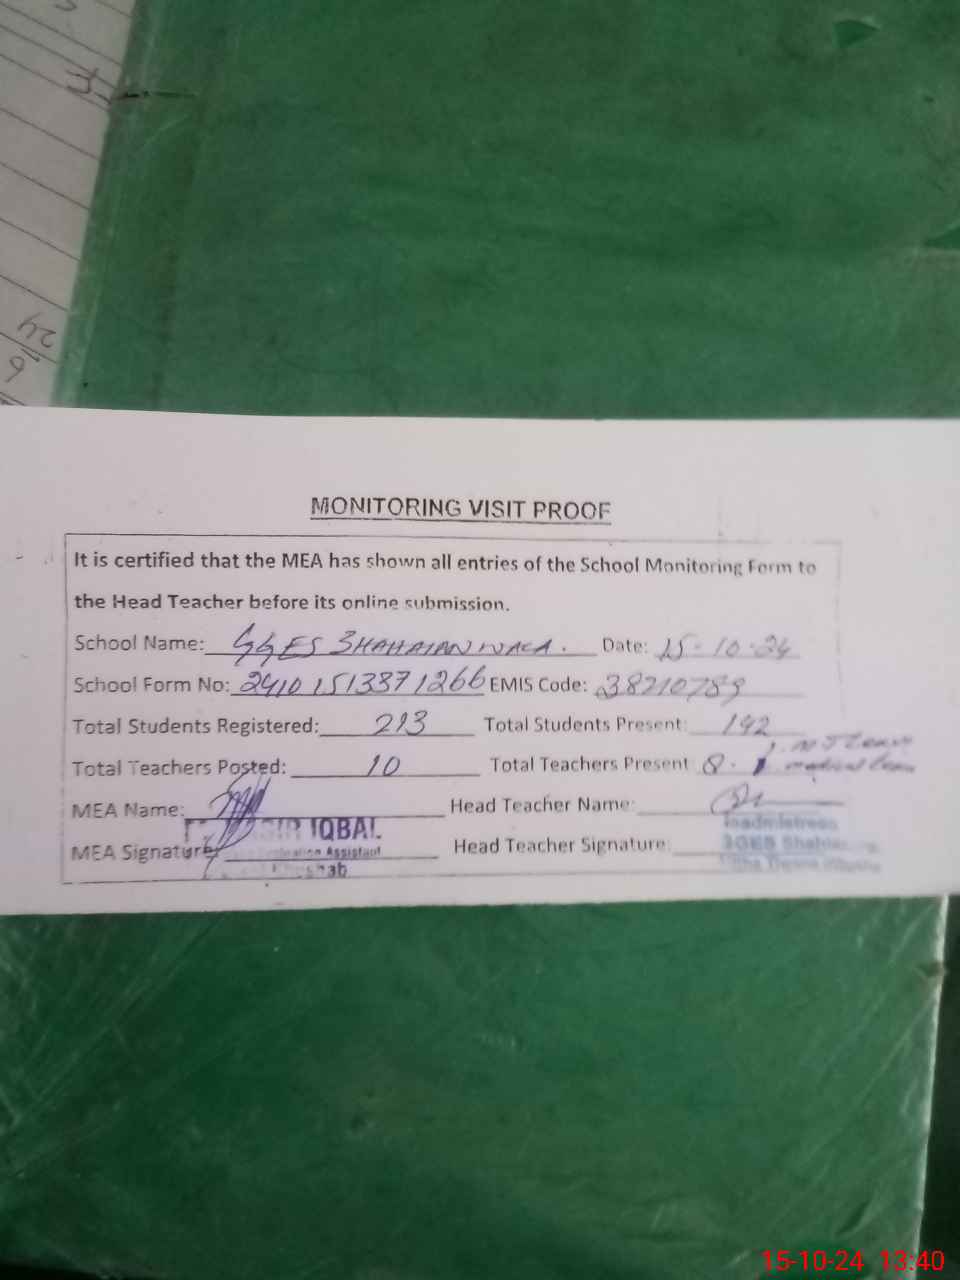 24
6
MONITORING VISIT PROOF
It is certified that the MEA has shown all entries of the School Monitoring Form to
the Head Teacher before its online submission.
School Name: GGES SHAHAIANWALA. Date: 15-10-24
School Form No: 24101513371266 EMIS Code: 38210789
Total Students Registered: 213 Total Students Present: 192
Total Teachers Posted: 10 Total Teachers Present 8.
medical leave
MEA Name: Head Teacher Name:
IQBAL Headmistress
MEA Signature: Evaluation Assistant Head Teacher Signature: GGES
Khushab
15-10-24 13:40